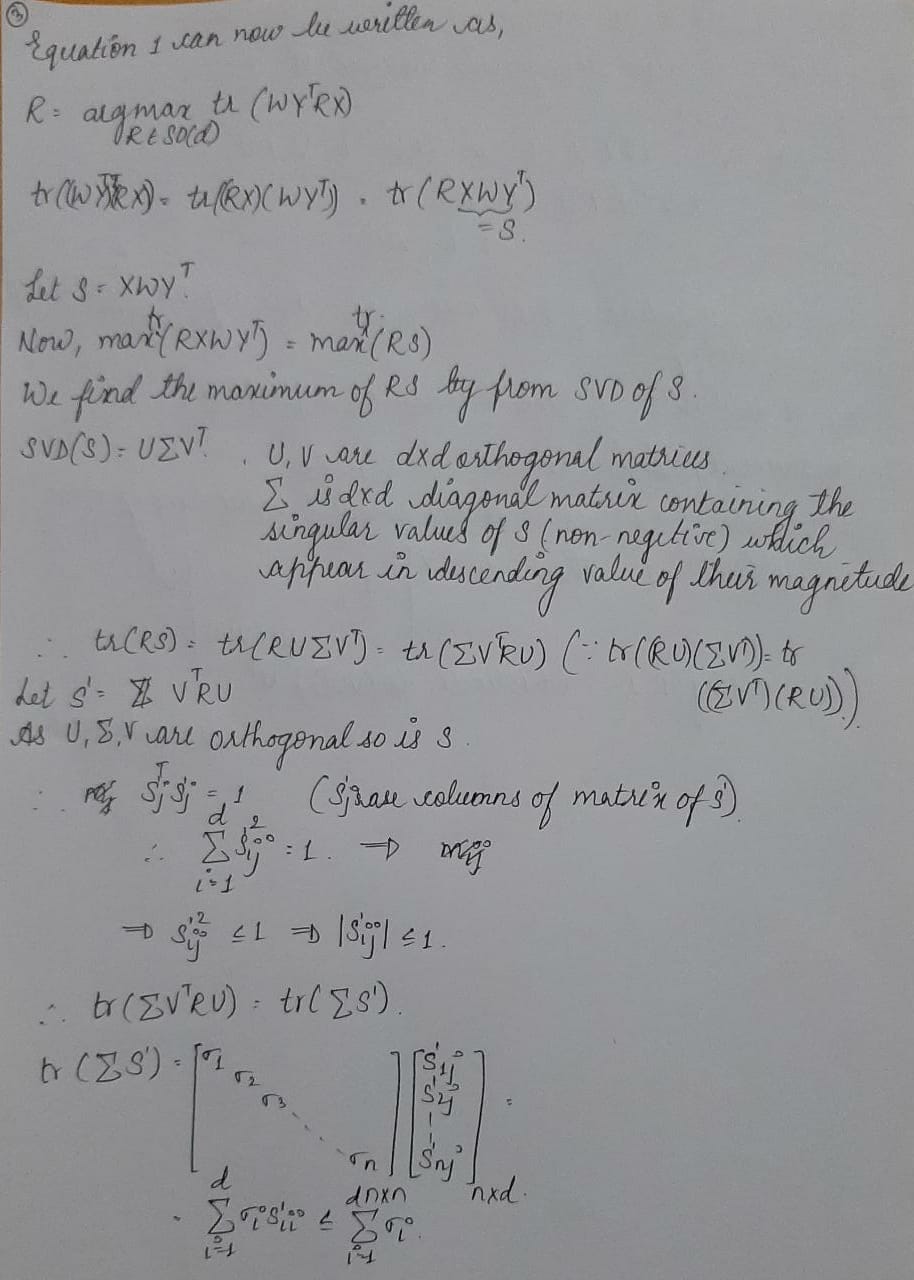 ③
Equation 1 can now be written as,
R = argmax tr (WYᵀRX)
R ∈ SO(d)
tr((WYᵀ)(RX)) = tr((RX)(WYᵀ)) = tr(RXWYᵀ)
= S.
Let S = XWYᵀ.
Now, max tr(RXWYᵀ) = max tr(RS)
We find the maximum of RS by from SVD of S.
SVD(S) = UΣVᵀ. , U, V are dxd orthogonal matrices
Σ is dxd diagonal matrix containing the
singular values of S (non-negitive) which
appear in descending value of their magnitude
∴ tr(RS) = tr(RUΣVᵀ) = tr(ΣVᵀRU) (∵ tr((RU)(ΣVᵀ)) = tr
Let S' = VᵀRU ((ΣVᵀ)(RU)))
As U, Σ, V are orthogonal so is S.
∴ S'ⱼᵀS'ⱼ = 1 (S'ⱼ are columns of matrix of S')
∴ Σᵢ₌₁ᵈ S'ᵢⱼ² = 1. ⇒
⇒ S'ᵢⱼ² ≤ 1 ⇒ |S'ᵢⱼ| ≤ 1.
∴ tr(ΣVᵀRU) = tr(ΣS').
tr(ΣS') = [σ₁ σ₂ σ₃ ... σₙ] [S'₁ⱼ S'₂ⱼ | | S'ₙⱼ] =
nxn nxd.
= Σᵢ₌₁ᵈ σᵢS'ᵢᵢ ≤ Σᵢ₌₁ᵈ σᵢ.